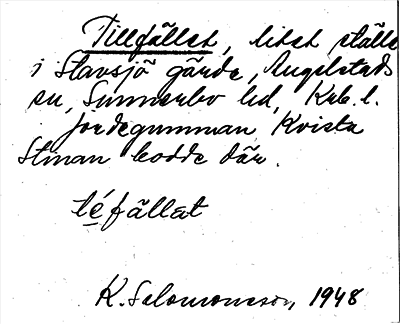 Tillfället, litet ställe
i Slavsjö gärde, Angelstads
sn, Sunnerbo hd, Krb. l.
Jordegumman Kvista
Stinan bodde där.
téfällat
K. Salomonsson, 1948